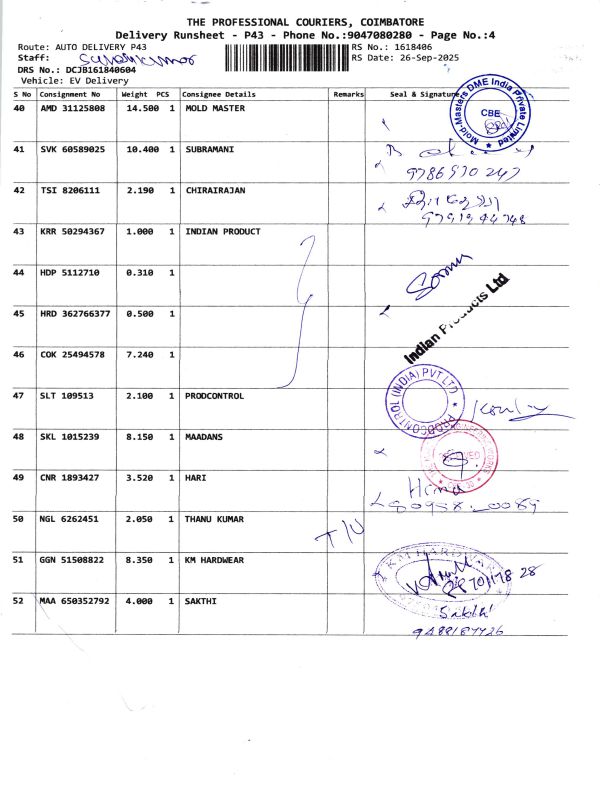 THE PROFESSIONAL COURIERS, COIMBATORE
Delivery Runsheet - P43 - Phone No.:9047080280 - Page No.:4
Route: AUTO DELIVERY P43
RS No.: 1618406
Staff:
RS Date: 26-Sep-2025
DRS No.: DCJB161840604
Vehicle: EV Delivery
S No Consignment No Weight PCS Consignee Details Remarks Seal & Signature
40 AMD 31125808 14.500 1 MOLD MASTER
Mold-Masters DME India Private Limited
CBE
41 SVK 60589025 10.400 1 SUBRAMANI
9786570247
42 TSI 8206111 2.190 1 CHIRAIRAJAN
43 KRR 50294367 1.000 1 INDIAN PRODUCT
44 HDP 5112710 0.310 1
45 HRD 362766377 0.500 1
Indian Products Ltd
46 COK 25494578 7.240 1
47 SLT 109513 2.100 1 PRODCONTROL
PRODCONTROL (INDIA) PVT LTD
48 SKL 1015239 8.150 1 MAADANS
49 CNR 1893427 3.520 1 HARI
50 NGL 6262451 2.050 1 THANU KUMAR
51 GGN 51508822 8.350 1 KM HARDWEAR
KM HARDWARE
52 MAA 650352792 4.000 1 SAKTHI
Sakthi